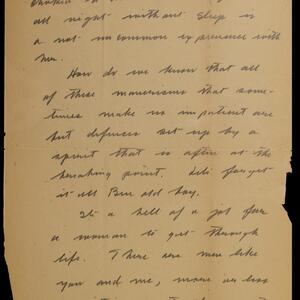 all night without sleep is
a not uncommon experience with
me.
How do we know that all
of these mannerisms that some-
times make us impatient are
but defences set up by a
spirit that is often at the
breaking point. Let's forget
it all Ben old boy.
It's a hell of a job for
a woman to get through
life. There are men like
you and me, more or less